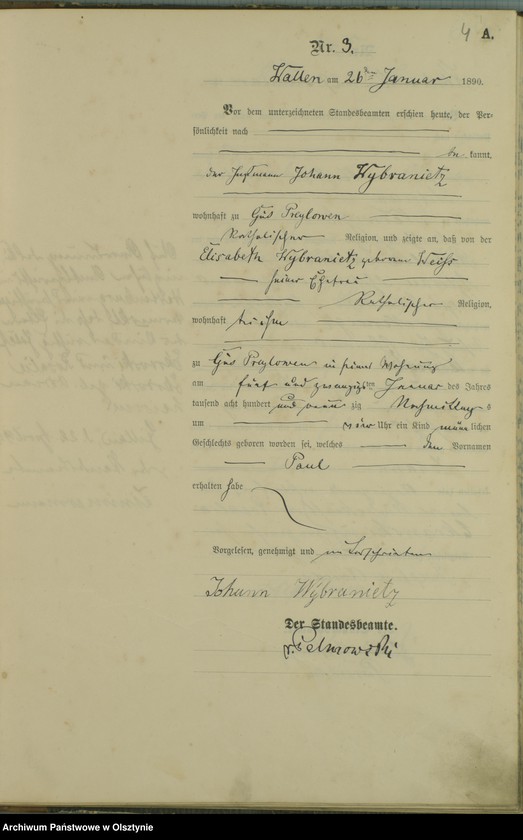 4 A.
Nr. 3.
Wallen am 26ten Januar 1890.
Vor dem unterzeichneten Standesbeamten erschien heute, der Per-
sönlichkeit nach
be kannt,
der Instmann Johann Wybranietz
wohnhaft zu Gut Preylowen
Katholischer Religion, und zeigte an, daß von der
Elisabeth Wybranietz geborenen Weiss
seiner Ehefrau
Katholischer Religion,
wohnhaft bei ihm
zu Gut Preylowen in seiner Wohnung
am fünf und zwanzigsten Januar des Jahres
tausend acht hundert und neun zig Nachmittag s
um vier Uhr ein Kind männlichen
Geschlechts geboren worden sei, welches den Vornamen
Paul
erhalten habe
Vorgelesen, genehmigt und unterschrieben
Johann Wybranietz
Der Standesbeamte.
Archiwum Państwowe w Olsztynie